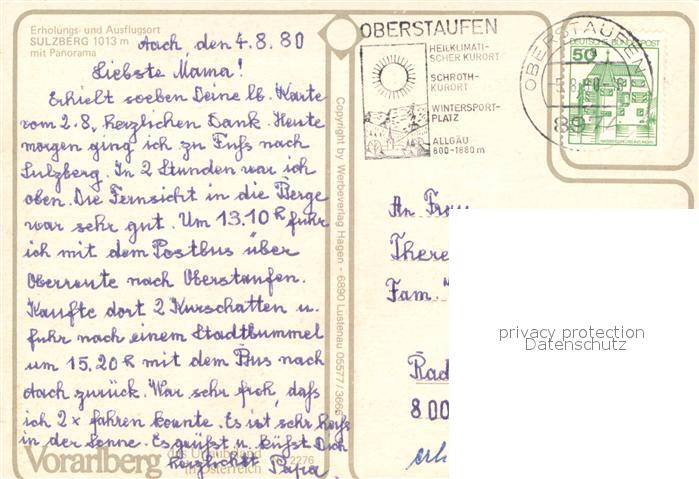 Erholungs- und Ausflugsort
SULZBERG 1013 m
mit Panorama
Aach, den 4.8.80
Liebste Mama!
Erhielt soeben Deine lb. Karte
vom 2.8., herzlichen Dank. Heute
morgen ging ich zu Fuß nach
Sulzberg. In 2 Stunden war ich
oben. Die Fernsicht in die Berge
war sehr gut. Um 13.10 h fuhr
ich mit dem Postbus über
Oberreute nach Oberstaufen.
Kaufte dort 2 Kurschatten u.
fuhr nach einem Stadtbummel
um 15.20 h mit dem Bus nach
Aach zurück. War sehr froh, daß
ich 2x fahren konnte. Es ist sehr heiß
in der Sonne. Es grüßt u. küßt Dich
herzlichst Papa
Vorarlberg
das Urlaubsland
in Österreich
2276
Copyright by Werbeverlag Hagen - 6890 Lustenau 05577/3666
OBERSTAUFEN
HEILKLIMATI-
SCHER KURORT
SCHROTH-
KURORT
WINTERSPORT-
PLATZ
ALLGÄU
800-1880 m
OBERSTAUFEN
DEUTSCHE BUNDESPOST
50
An Frau
There
Fam.
Rad
800
erh
privacy protection
Datenschutz